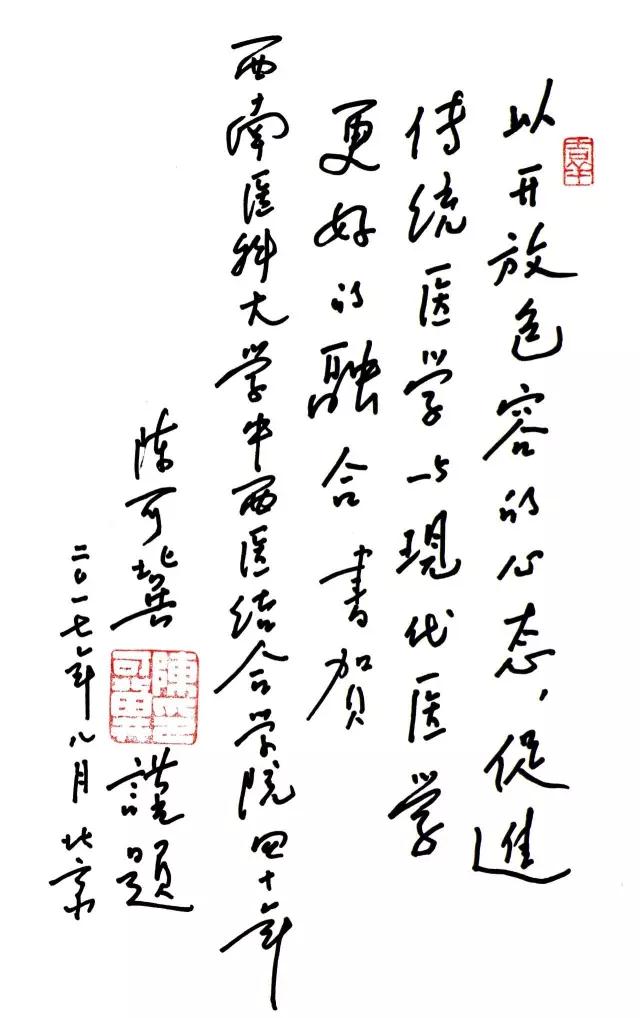 以开放包容的心态，促進
传统医学与现代医学
更好的融合 書贺
西南医科大学中西医结合学院四十年
陈可冀 謹題
二〇一七年八月北京
陳可冀印